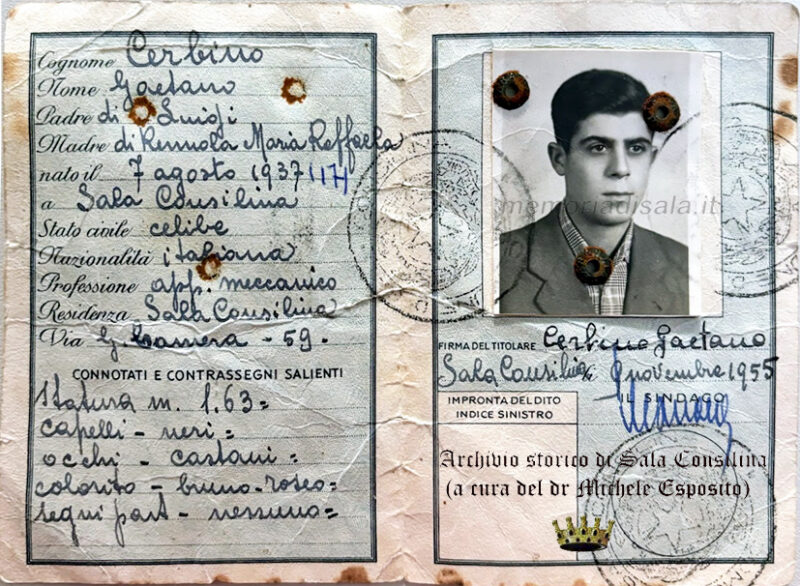 Cognome Cerbino
Nome Gaetano
Padre di Luigi
Madre di Remola Maria Raffaela
nato il 7 agosto 1937 (17)
a Sala Consilina
Stato civile celibe
Nazionalità italiana
Professione app. meccanico
Residenza Sala Consilina
Via G. Camera - 59 -
CONNOTATI E CONTRASSEGNI SALIENTI
Statura m. 1.63=
capelli - neri =
occhi - castani =
colorito - bruno-roseo=
segni part - nessuno=
memoriadisala.it
FIRMA DEL TITOLARE Cerbino Gaetano
Sala Consilina 9 novembre 1955
IL SINDACO
IMPRONTA DEL DITO
INDICE SINISTRO
Archivio storico di Sala Consilina
(a cura del dr Michele Esposito)